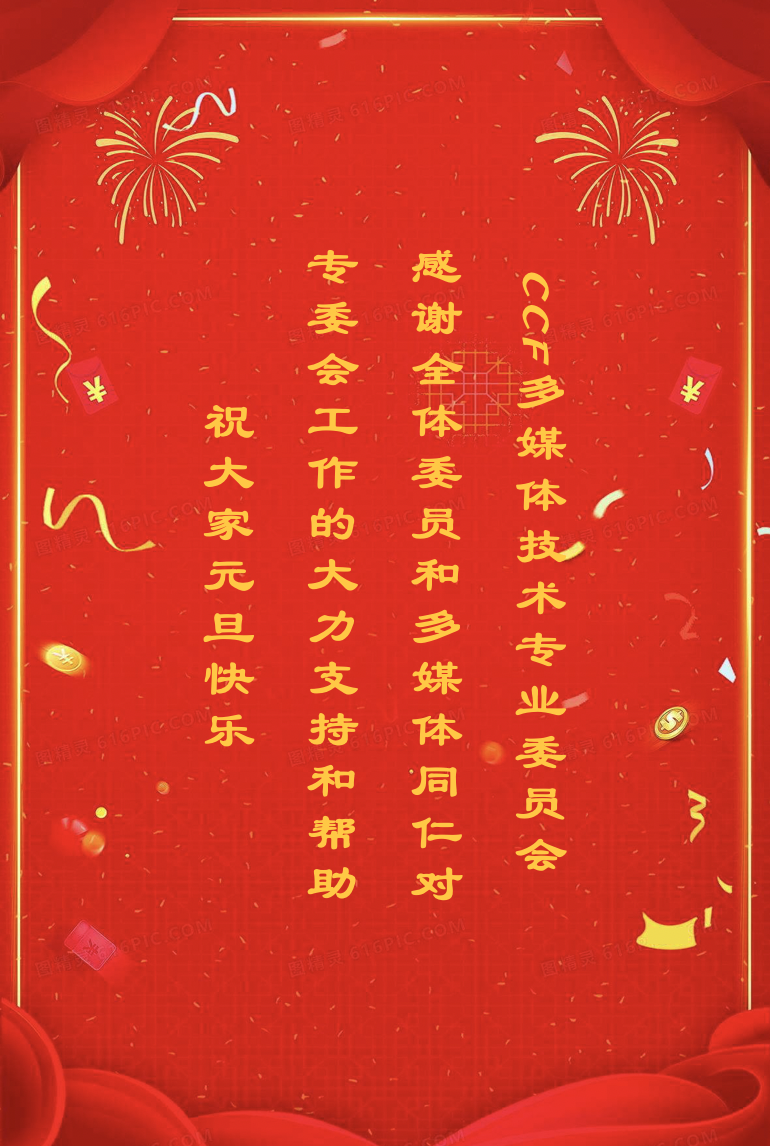 CCF多媒体技术专业委员会
感谢全体委员和多媒体同仁对
专委会工作的大力支持和帮助
祝大家元旦快乐